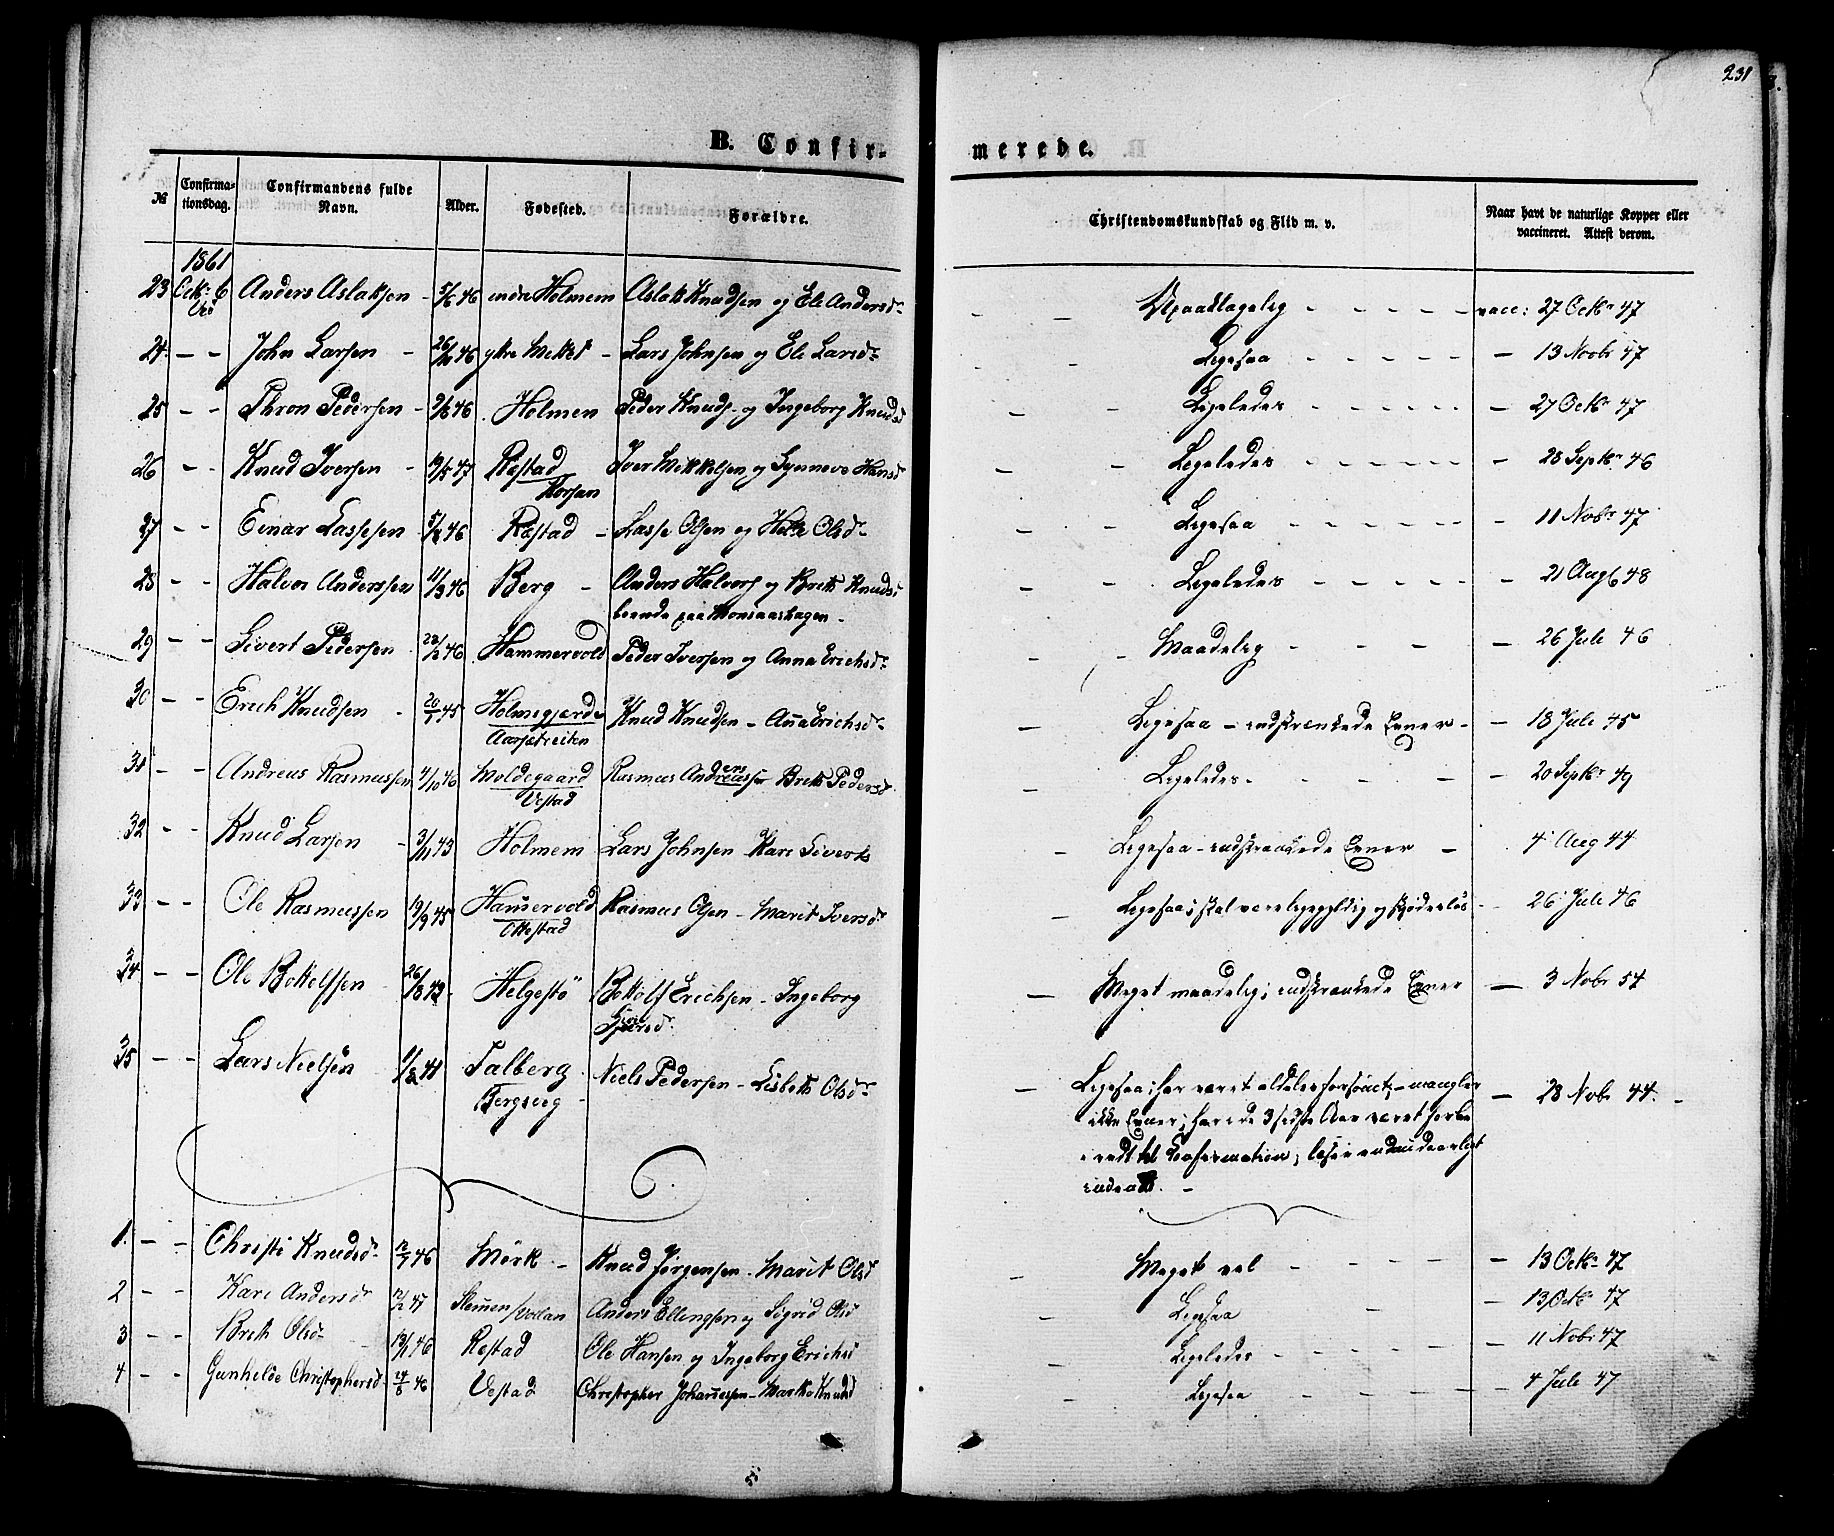 231
B. Confir- merede.
№ Confirma-tionsdag. Confirmandens fulde Navn. Alder. Fødested. Forældre. Christendomskundskab og Flid m. v. Naar havt de naturlige Kopper eller vaccineret. Attest derom.
1861
23 Octr 6 Anders Aslaksen - 5/6 46 indre Holmem Aslak Knudsen og Ele Andersdr - - - Upaaklagelig - - - - - vacc: 27 Octbr 47
24 - - John Larsen - 46 ytre Mittet - Lars Johnsen og Ele Larsdr - - - Ligesaa - - - - - - 13 Novbr 47
25 - - Thron Pedersen - 46 Holmen Peder Knuds. og Ingeborg Knudsd - - Ligeledes - - - - - - 27 Octbr 47
26 - - Knud Iversen - 47 Røstad Iver Mikkelsen og Synneve Hansd - - Ligeledes - - - - - - 28 Septbr 46
Korsan
27 - - Einar Lassesen 46 Røstad - Lasse Olsen og Olsdr - - - Ligesaa - - - - - - 11 Nobr 47
28 - - Halvor Anderssen 11/3 46 Berg - Anders Halvors og Brith Knudsd - - Ligeledes - - - - - - 21 Aug 48
boende paa Monsaashagen -
29 - - Sivert Pedersen 46 Hammervold Peder Iversen og Anna Erichsdr - - Maadelig - - - - 26 Juli 46
30 - - Erich Knudsen - 20/5 45 Holmegjærde Knud Knudsen - Aña Erichsdr - - Ligesaa - indskrænkede Evner - - 18 Juli 45
Aarsætreiten
31 - - Andreas Rasmussen 4/10 46 Moldegaard Rasmus Andreassen ers Brith Pedersd - Ligeledes - - - - 20 Septbr 49
Vestad
32 - - Knud Larsen - 3/11 43 Holmem Lars Johnsen - Kari Siverts - Ligesaa - indskrænkede Evner - 4 Aug 44
33 - - Ole Rasmussen 19/9 45 Ham̅ervold Rasmus Olsen - Marit Iversdr - Ligesaa; skal være ligegyldig og skjødesløs - 26 Juli 46
Ottestad
34 - - Ole Bottolfsen - 26/8 43 Helgestö Bottolf Erichsen - Ingeborg - Meget maadelig; indskrænkede Evner - 3 Nobr 54
Sivertsdr
35 - - Lars Nielsen 41 Talberg Niels Pedersen - Lisbeth Olsdr - Ligesaa; har været aldeles forsømt, - mangler - 28 Nobr 44. -
Bergsvig - ikke Evner; har i de 3 sidste Aar været forbe
redt til Confirmation; læser endnu daarligt
indenad. -
1 - - Christi Knudsdr 12/7 46 Mörk - Knud Jørgensen - Marit Olsd - Meget vel - - - - 13 Octbr 47
2 - - Kari Andersdr 47 Anders Ellingsen og Sigrid Olsd - Ligesaa - - 13 Octbr 47
3 - - Brith Olsdr 46 Røstad Ole Hansen og Ingeborg Erichsd - Ligeledes - - - - - - 11 Nobr 47
4 - - Gunhilde Christophersd 46 Vestad Christopher Johan̅essen - Marthe Knudsd - Ligesaa - - - - - 4 Juli 47